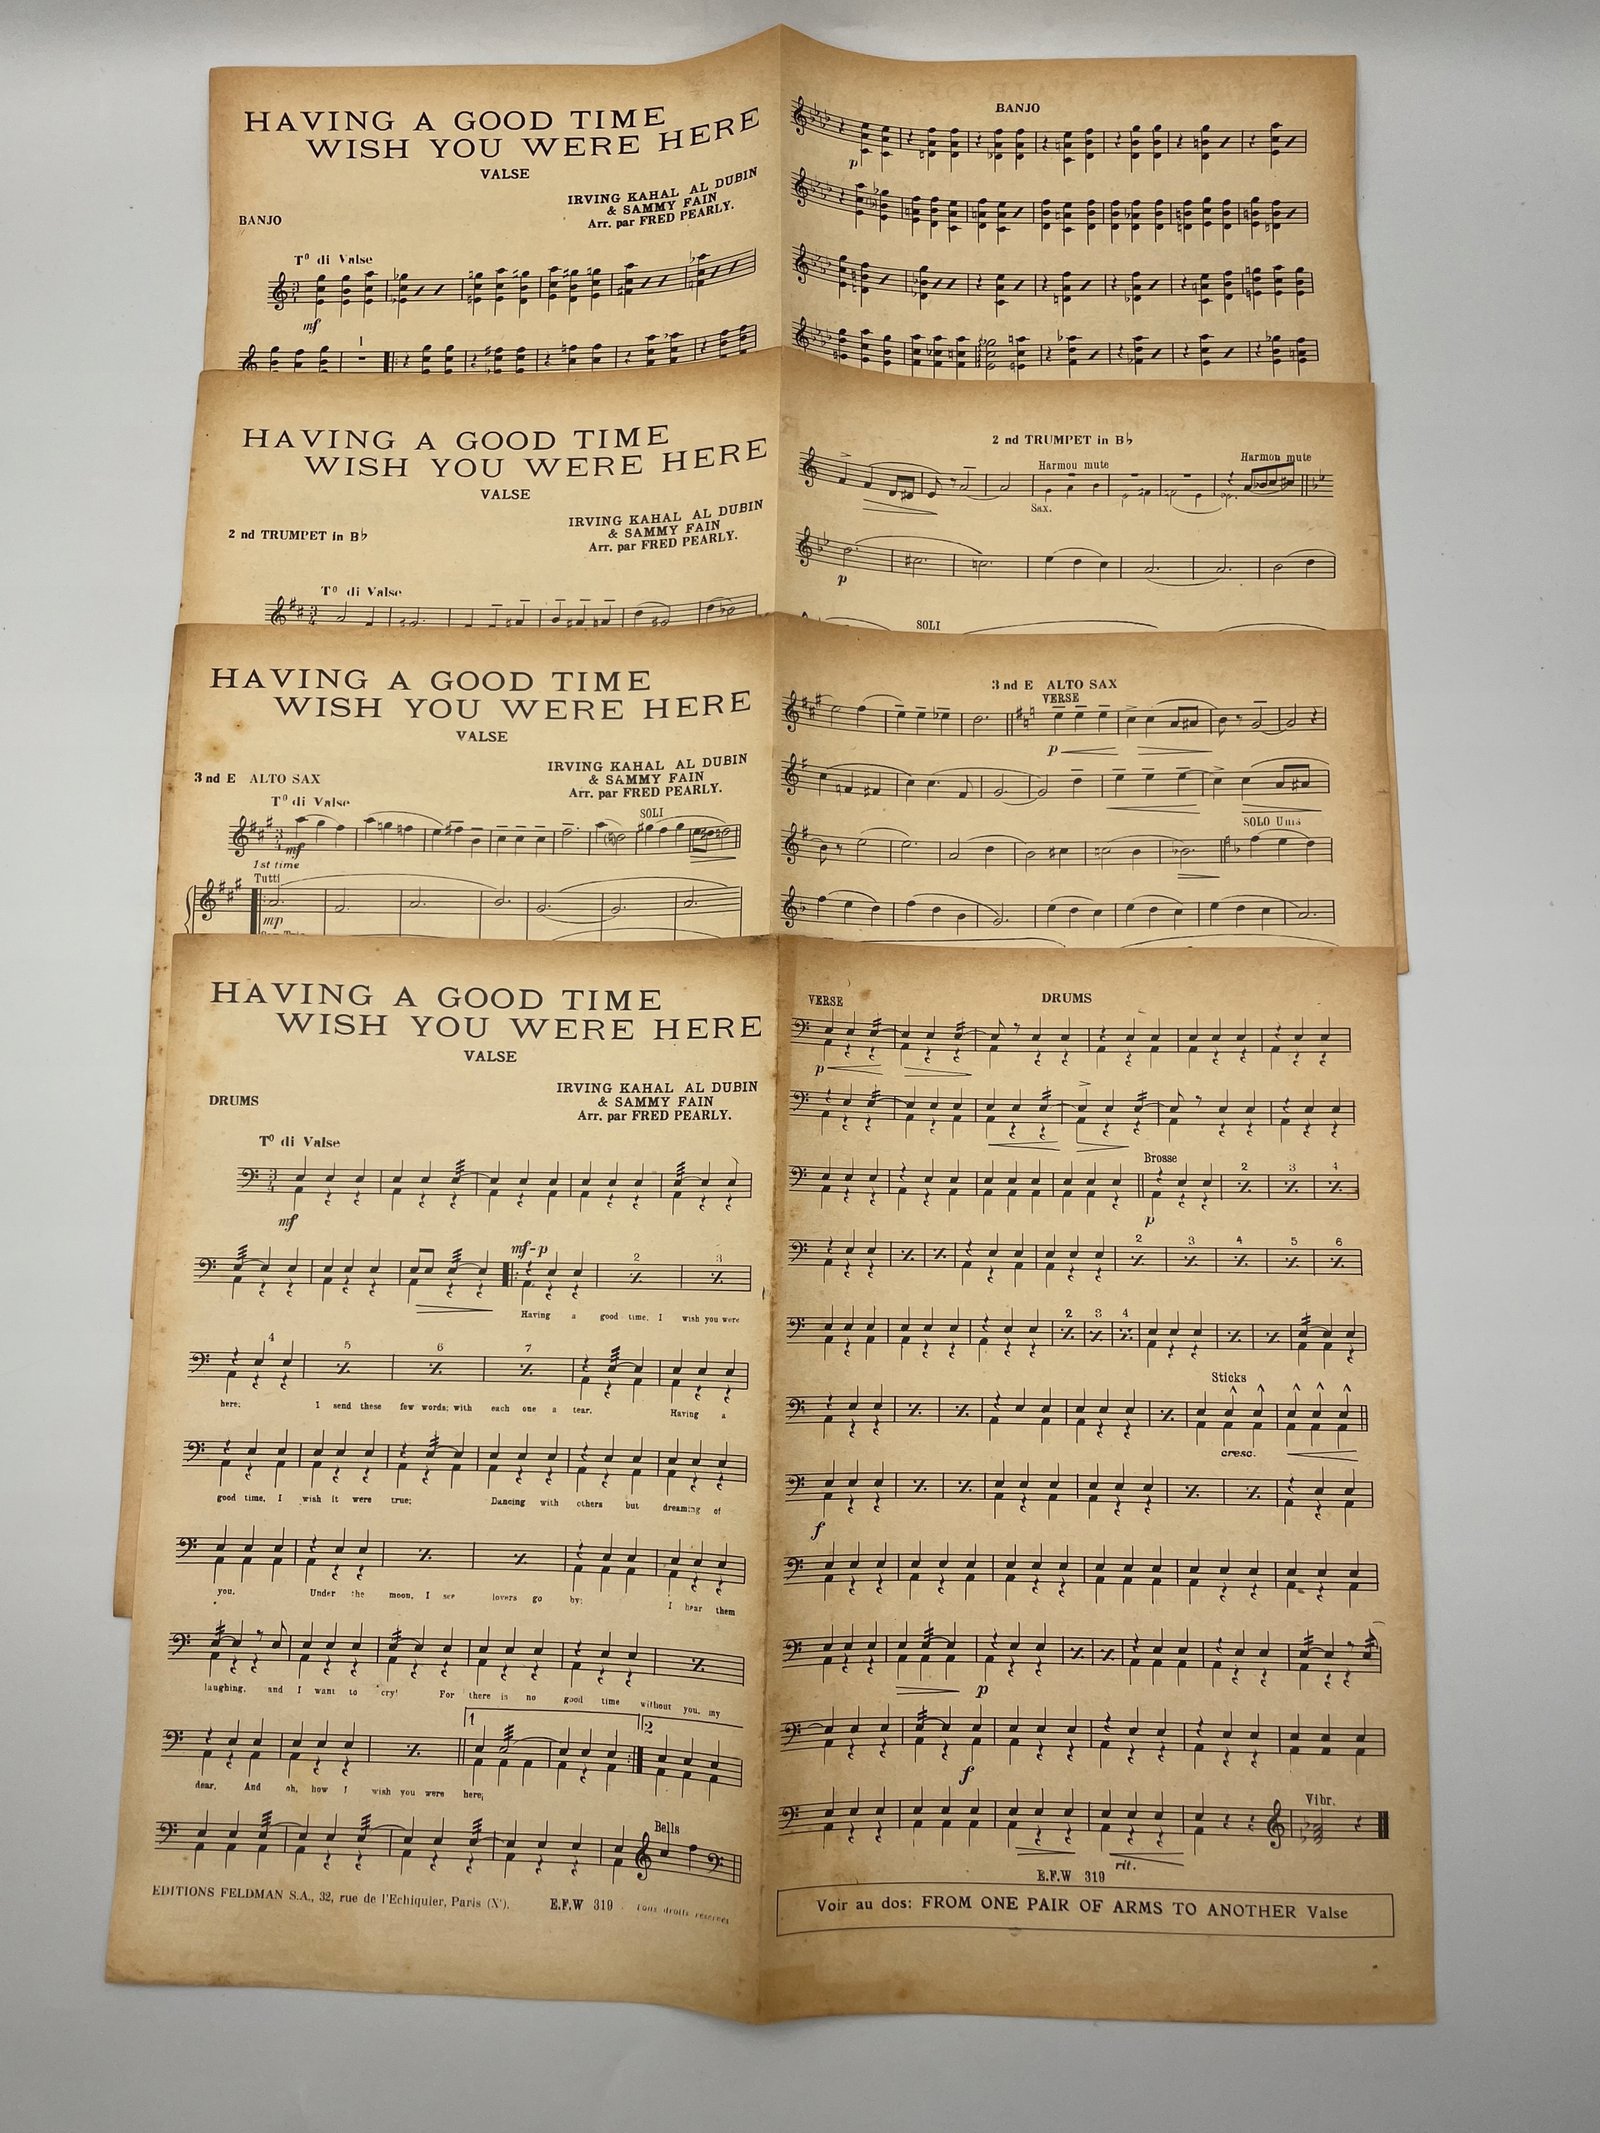 HAVING A GOOD TIME
WISH YOU WERE HERE
VALSE
IRVING KAHAL AL DUBIN
& SAMMY FAIN
Arr. par FRED PEARLY.
BANJO
Tº di Valse
mf
1
BANJO
p
HAVING A GOOD TIME
WISH YOU WERE HERE
VALSE
IRVING KAHAL AL DUBIN
& SAMMY FAIN
Arr. par FRED PEARLY.
2 nd TRUMPET in B♭
Tº di Valse
2 nd TRUMPET in B♭
Harmou mute
Harmon mute
Sax.
p
SOLI
HAVING A GOOD TIME
WISH YOU WERE HERE
VALSE
IRVING KAHAL AL DUBIN
& SAMMY FAIN
Arr. par FRED PEARLY.
3 nd E ALTO SAX
Tº di Valse
SOLI
mf
1st time
Tutti
mp
3 nd E ALTO SAX
VERSE
p
SOLO Unis
HAVING A GOOD TIME
WISH YOU WERE HERE
VALSE
IRVING KAHAL AL DUBIN
& SAMMY FAIN
Arr. par FRED PEARLY.
DRUMS
Tº di Valse
mf
mf-p
2 3
Having a good time, I wish you were
4 5 6 7
here; I send these few words; with each one a tear. Having a
good time, I wish it were true; Dancing with others but dreaming of
you. Under the moon, I see lovers go by; I hear them
laughing, and I want to cry! For there is no good time without you, my
1 2
dear. And oh, how I wish you were here;
Bells
EDITIONS FELDMAN S.A., 32, rue de l'Echiquier, Paris (Xe). E.F.W 319 Tous droits réservés
DRUMS
VERSE
p
Brosse
2 3 4
p
2 3 4 5 6
2 3 4
Sticks
cresc.
f
p
f
Vibr.
rit.
E.F.W 319
Voir au dos: FROM ONE PAIR OF ARMS TO ANOTHER Valse